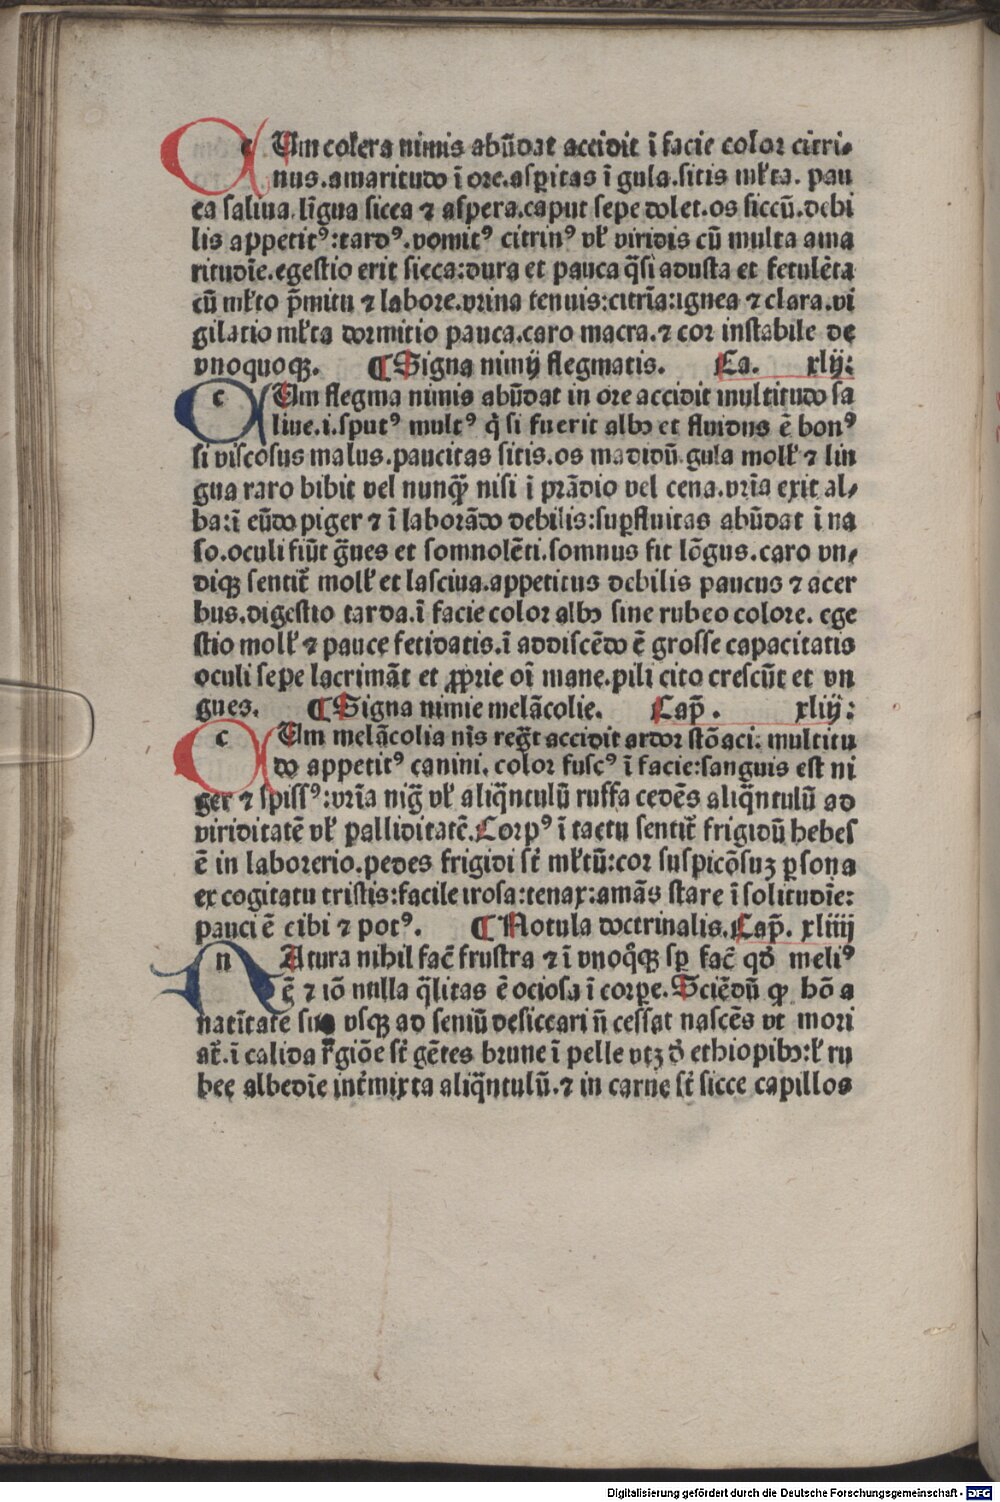 CUm colera nimis abūdat accidit ī facie color citri⸗
nus.amaritudo ī ore.asꝑitas ī gula.sitis ml̄ta. pau
ca saliua.līgua sicca ⁊ aspera.caput sepe dolet.os siccū.debi
lis appetitꝰ:tardꝰ.vomitꝰ citrinꝰ vl̄ viridis cū multa ama
ritudīe.egestio erit sicca:dura et pauca q̄si adusta et fetulēta
cū ml̄to p̄mitu ⁊ labore.vrina tenuis:citrīa:ignea ⁊ clara.vi
gilatio ml̄ta dormitio pauca.caro macra.⁊ cor instabile de
vnoquoqꝫ. ¶ Signa nimij flegmatis. Ca. xlij:
CUm flegma nimis abūdat in ore accidit multitudo sa
liue.i.sputꝰ multꝰ q̇ si fuerit albo et fluidus ē bonꝰ
si viscosus malus.paucitas sitis.os madidū.gula moll̄ ⁊ lin
gua raro bibit vel nunqꝫ̄ nisi ī prādio vel cena.vrīa exit al⸗
ba:ī eūdo piger ⁊ ī laborādo debilis:suꝑfluitas abūdat ī na
so.oculi fiūt ḡues et somnolēti.somnus fit lōgus.caro vn⸗
diqꝫ sentit̄ moll̄ et lasciua.appetitus debilis paucus ⁊ acer
bus.digestio tarda.ī facie color albꝰ sine rubeo colore. ege
stio moll̄ ⁊ pauce fetidatis.ī addiscēdo ē grosse capacitatis
oculi sepe lacrimāt et ꝓprie oī mane.pili cito crescūt et vn
gues. ¶ Signa nimie melācolie. Cap̄. xliij:
CUm melācolia nīs reḡt accidit ardor stōaci: multitu
do appetitꝰ canini. color fuscꝰ ī facie:sanguis est ni
ger ⁊ spissꝰ:vrīa niḡ vl̄ aliq̄ntulū ruffa cedēs aliq̄ntulū ad
viriditatē vl̄ palliditatē.Corpꝰ ī tactu sentit̄ frigidū hebes
ē in laborerio.pedes frigidi st̄ ml̄tū:cor suspicōsuꝫ ꝑsona
ex cogitatu tristis:facile irosa:tenax:amās stare ī solitudīe:
pauci ē cibi ⁊ potꝰ. ¶ Notula doctrinalis.Cap̄. xliiij
NAtura nihil fac̄ frustra ⁊ ī vnoq̊qꝫ sꝑ fac̄ qđ meliꝰ
ē ⁊ iō nulla q̄litas ē ociosa ī corꝑe.Sciēdū ꝙ hō a
natītate sua vsqꝫ ad seniū desiccari n̄ cessat nascēs vt mori
at̄.ī calida r̄giōe st̄ gētes brune ī pelle vtꝫ đ ethiopibꝰ:l̄ ru
bee albedīe int̄mixta aliq̄ntulū.⁊ in carne st̄ sicce capillos
Digitalisierung gefördert durch die Deutsche Forschungsgemeinschaft - DFG